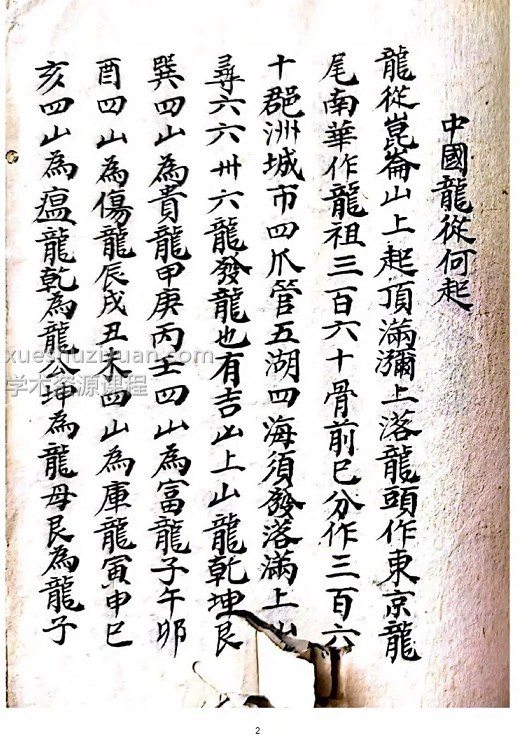 中國龍從何起
龍從崑崙山上起頂滿瀰上落龍頭作東京龍
尾南華作龍祖三百六十骨前已分作三百六
十郡洲城市四爪管五湖四海須發落滿上山
尋六六卅六龍發龍也有吉凶上山龍乾坤艮
巽四山為貴龍甲庚丙壬四山為富龍子午卯
酉四山為傷龍辰戌丑未四山為庫龍寅申巳
亥四山為瘟龍乾為龍公坤為龍母艮為龍子
xueshuziyuan.com
学术资源课程
2